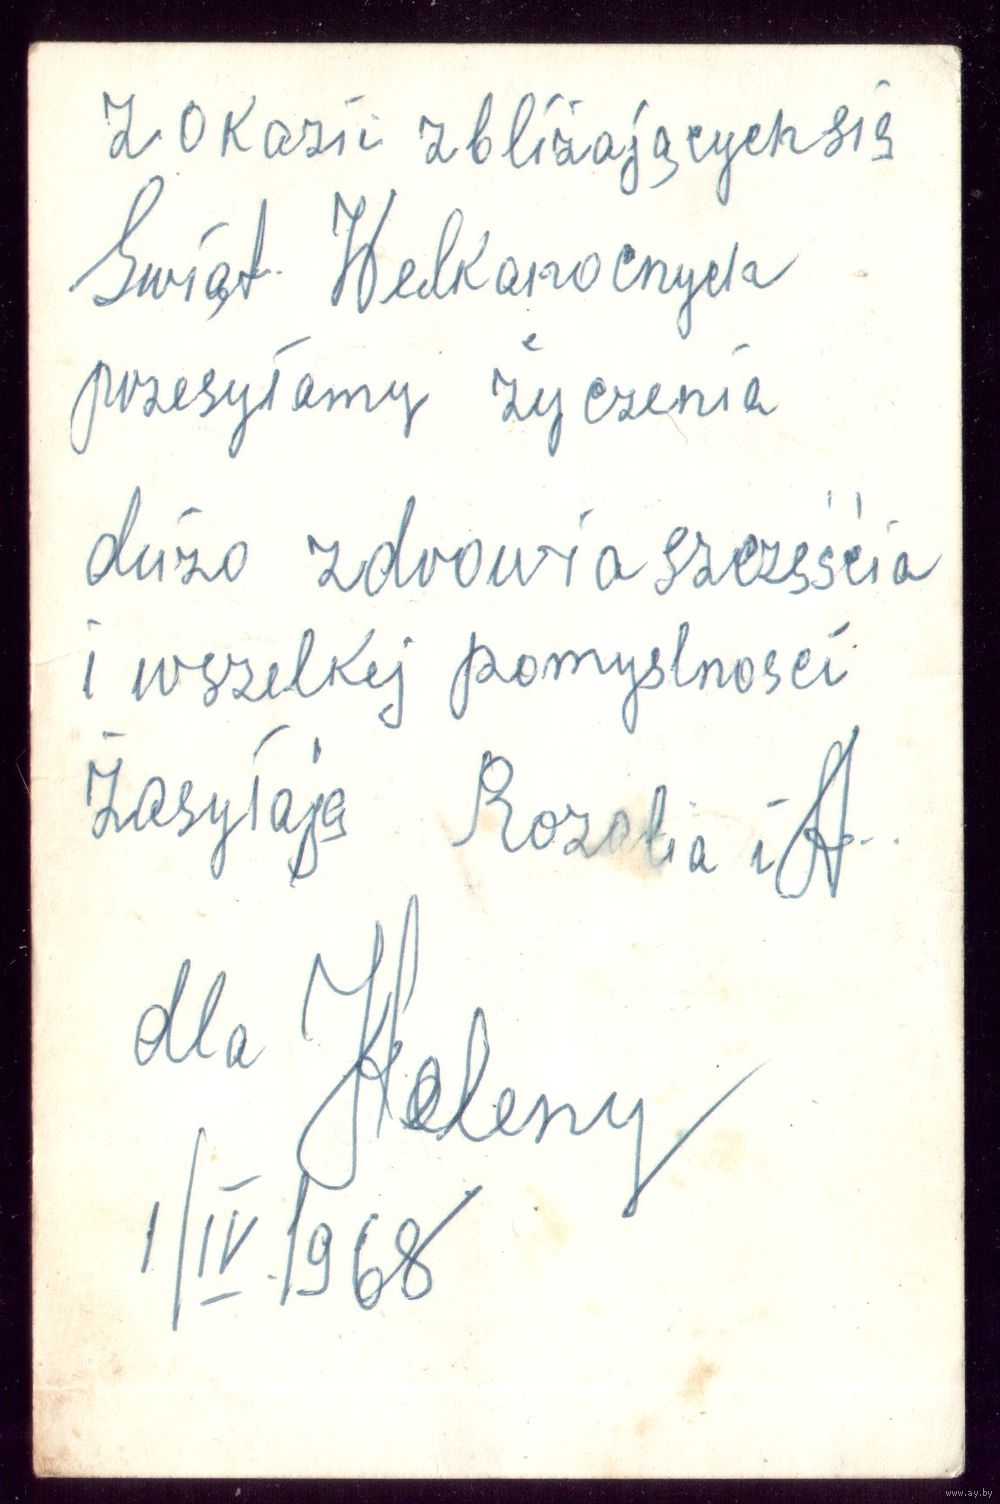 Z okazii zbliżających się
Świąt Welkanocnych
przesyłamy życzenia
dużo zdrowia szczęścia
i wszelkej pomyslnosci
Zasyłają Rozalia i A..
dla Heleny
1/IV 1968
www.ay.by